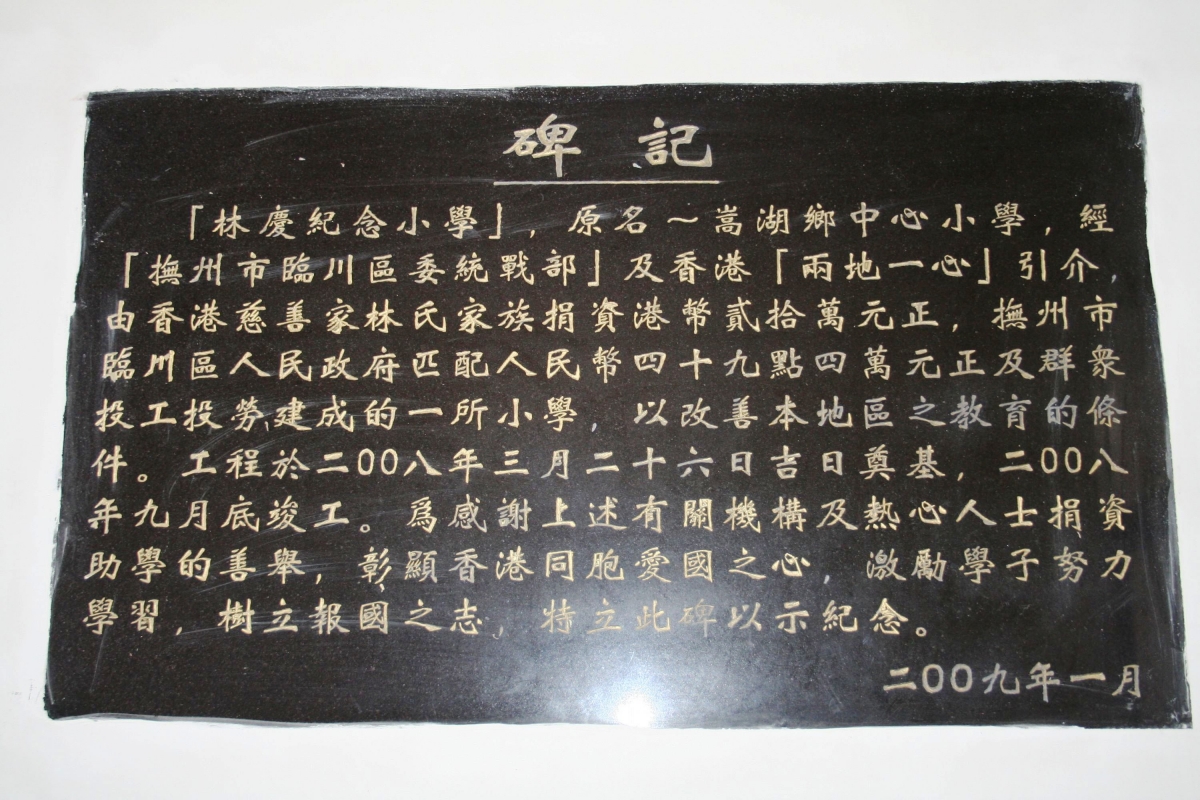 碑 記
「林慶紀念小學」，原名～嵩湖鄉中心小學，經
「撫州市臨川區委統戰部」及香港「兩地一心」引介，
由香港慈善家林氏家族捐資港幣貳拾萬元正，撫州市
臨川區人民政府匹配人民幣四十九點四萬元正及群衆
投工投勞建成的一所小學，以改善本地區之教育的條
件。工程於二00八年三月二十六日吉日奠基，二00八
年九月底竣工。爲感謝上述有關機構及熱心人士捐資
助學的善舉，彰顯香港同胞愛國之心，激勵學子努力
學習，樹立報國之志，特立此碑以示紀念。
二00九年一月